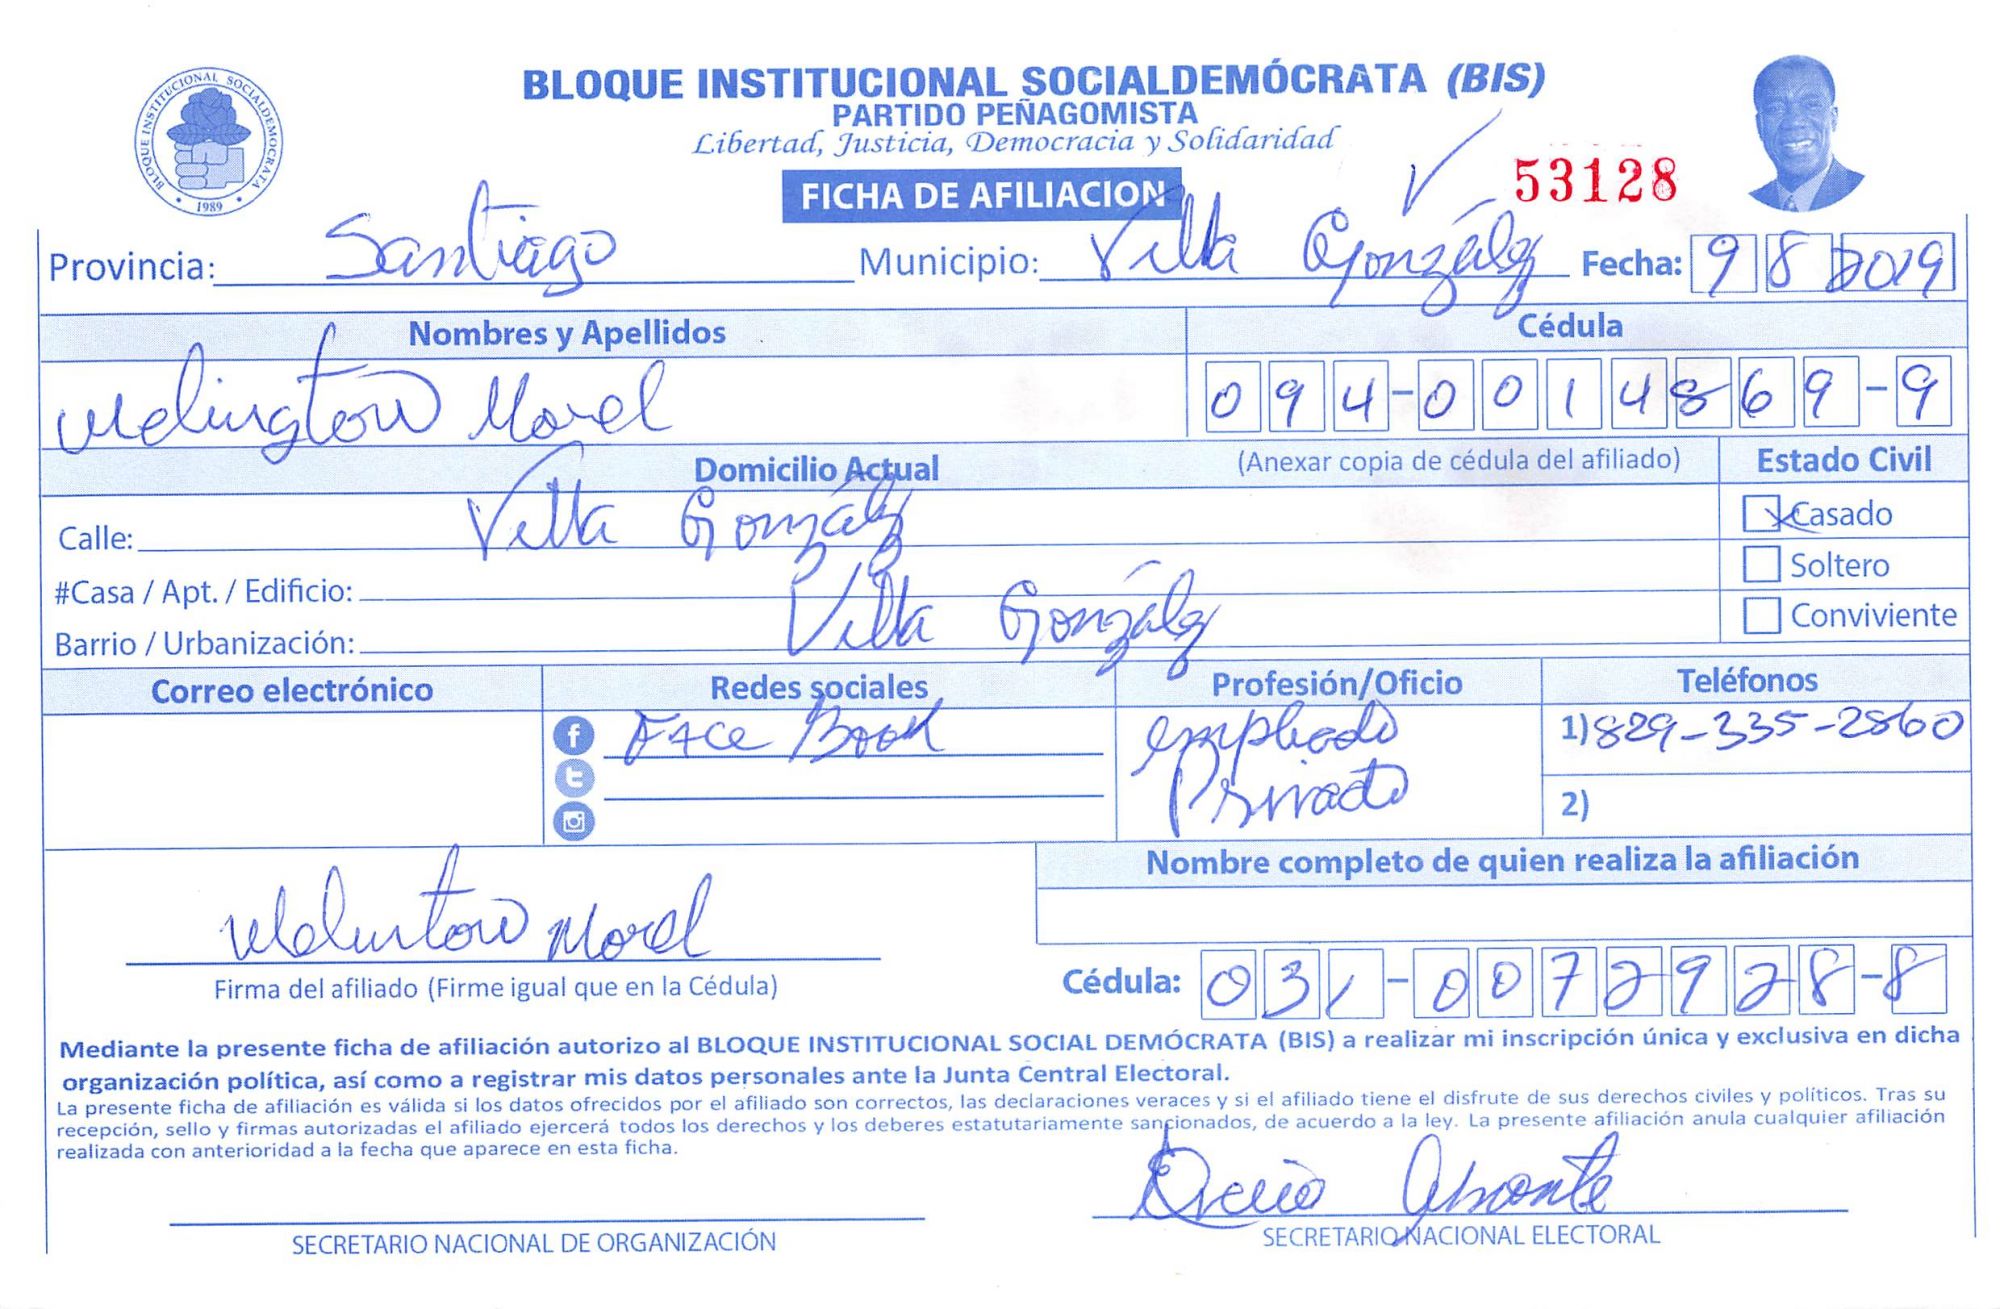 BLOQUE INSTITUCIONAL SOCIALDEMÓCRATA (BIS)
PARTIDO PEÑAGOMISTA
Libertad, Justicia, Democracia y Solidaridad
BLOQUE INSTITUCIONAL SOCIALDEMOCRATA
1989
FICHA DE AFILIACION
53128
Provincia: Santiago Municipio: Villa González Fecha: 9 8 2019
Nombres y Apellidos Cédula
Welington Morel 094-0014869-9
Domicilio Actual (Anexar copia de cédula del afiliado) Estado Civil
Calle: Villa González Casado
#Casa / Apt. / Edificio: Soltero
Barrio / Urbanización: Villa González Conviviente
Correo electrónico Redes sociales Profesión/Oficio Teléfonos
Face Book empleado 1) 829-335-2860
Privado 2)
Nombre completo de quien realiza la afiliación
Morel
Firma del afiliado (Firme igual que en la Cédula) Cédula: 031-0072928-8
Mediante la presente ficha de afiliación autorizo al BLOQUE INSTITUCIONAL SOCIAL DEMÓCRATA (BIS) a realizar mi inscripción única y exclusiva en dicha
organización política, así como a registrar mis datos personales ante la Junta Central Electoral.
La presente ficha de afiliación es válida si los datos ofrecidos por el afiliado son correctos, las declaraciones veraces y si el afiliado tiene el disfrute de sus derechos civiles y políticos. Tras su
recepción, sello y firmas autorizadas el afiliado ejercerá todos los derechos y los deberes estatutariamente sancionados, de acuerdo a la ley. La presente afiliación anula cualquier afiliación
realizada con anterioridad a la fecha que aparece en esta ficha.
Almonte
SECRETARIO NACIONAL DE ORGANIZACIÓN SECRETARIO NACIONAL ELECTORAL